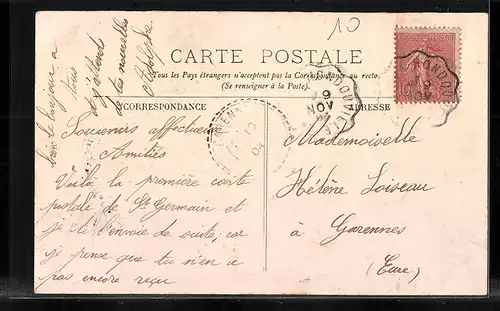 10
CARTE POSTALE
Tous les Pays étrangers n'acceptent pas la Correspondance au recto.
(Se renseigner à la Poste).
CORRESPONDANCE
ADRESSE
bien le bonjour a
tous
et j'attend
de tes nouvelles
Souvenirs affectueux
Amitiés
Voilà la première carte
postale de St Germain et
je te l'envoie de suite, car
je pense que tu n'en a
pas encore reçu
Mademoiselle
Hélène Loiseau
à Garennes
(Eure)
9
NOV
04